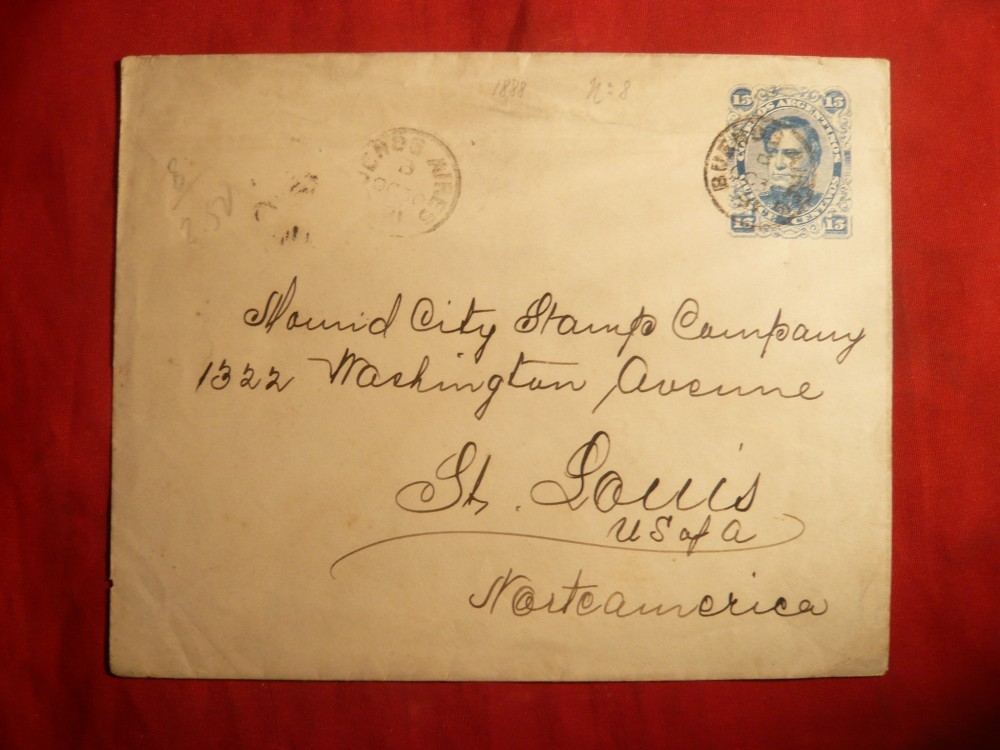 1888 N: 8
15 15
CORREOS ARGENTINOS
QUINCE CENTAVOS
15 15
BUENOS AIRES
8
2.50
Mound City Stamp Company
1322 Washington Avenue
St. Louis
US of A
Norteamerica